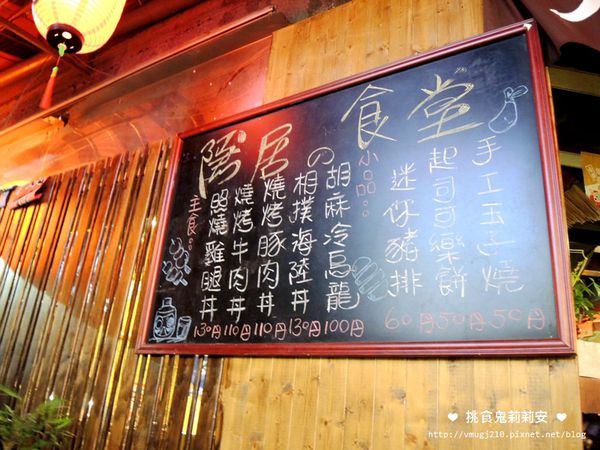 隱居の食堂
主食:
照燒雞腿丼 130円
燒烤牛肉丼 110円
燒烤豚肉丼 110円
相撲海陸丼 130円
胡麻冷烏龍 100円
小品:
迷你豬排 60円
起司可樂餅 50円
手工玉子燒 50円
❤ 挑食鬼莉莉安 ❤
http://vmugj210.pixnet.net/blog